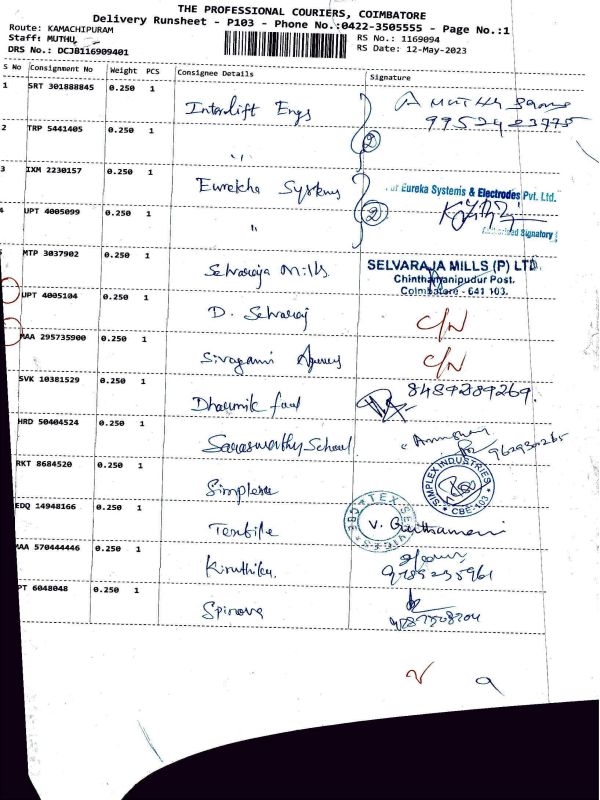 THE PROFESSIONAL COURIERS, COIMBATORE
Delivery Runsheet - P103 - Phone No.:0422-3505555 - Page No.:1
Route: KAMACHIPURAM
Staff: MUTHU
DRS No.: DCJB116909401
RS No.: 1169094
RS Date: 12-May-2023
S No Consignment No Weight PCS Consignee Details Signature
1 SRT 301888845 0.250 1 Interlift Engs
2 TRP 5441405 0.250 1 " 2
3 IXM 2230157 0.250 1 Eurekha Systems Eureka Systems & Electrodes Pvt. Ltd.
4 UPT 4005099 0.250 1 " 2 Authorised Signatory
MTP 3037902 0.250 1 Selvaraja Mills SELVARAJA MILLS (P) LTD
Chinthamanipudur Post.
Coimbatore - 641 103.
UPT 4005104 0.250 1 D. Selvaraj C/N
MAA 295735900 0.250 1 Sivagami Agency C/N
SVK 10381529 0.250 1 Dharmik
HRD 50404524 0.250 1 Saraswathy School
RKT 8684520 0.250 1 Simplex SIMPLEX INDUSTRIES CBE-103
EDQ 14948166 0.250 1 Textile
MAA 570444446 0.250 1 Kiruthika
PT 6048048 0.250 1 Spinova